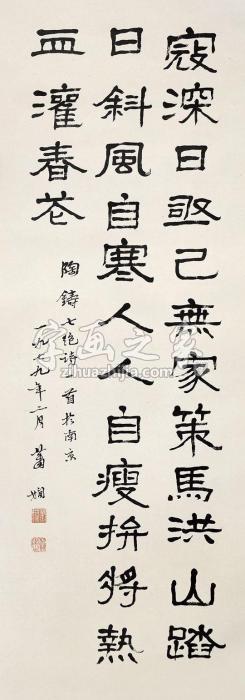 寇深日亟已無家策馬洪山踏
日斜風自寒人人自瘦拚將熱
血灌春花
陶鑄七绝詩一首於南京
一九七九年二月 蕭嫻
字画之家
zihuazhijia.com